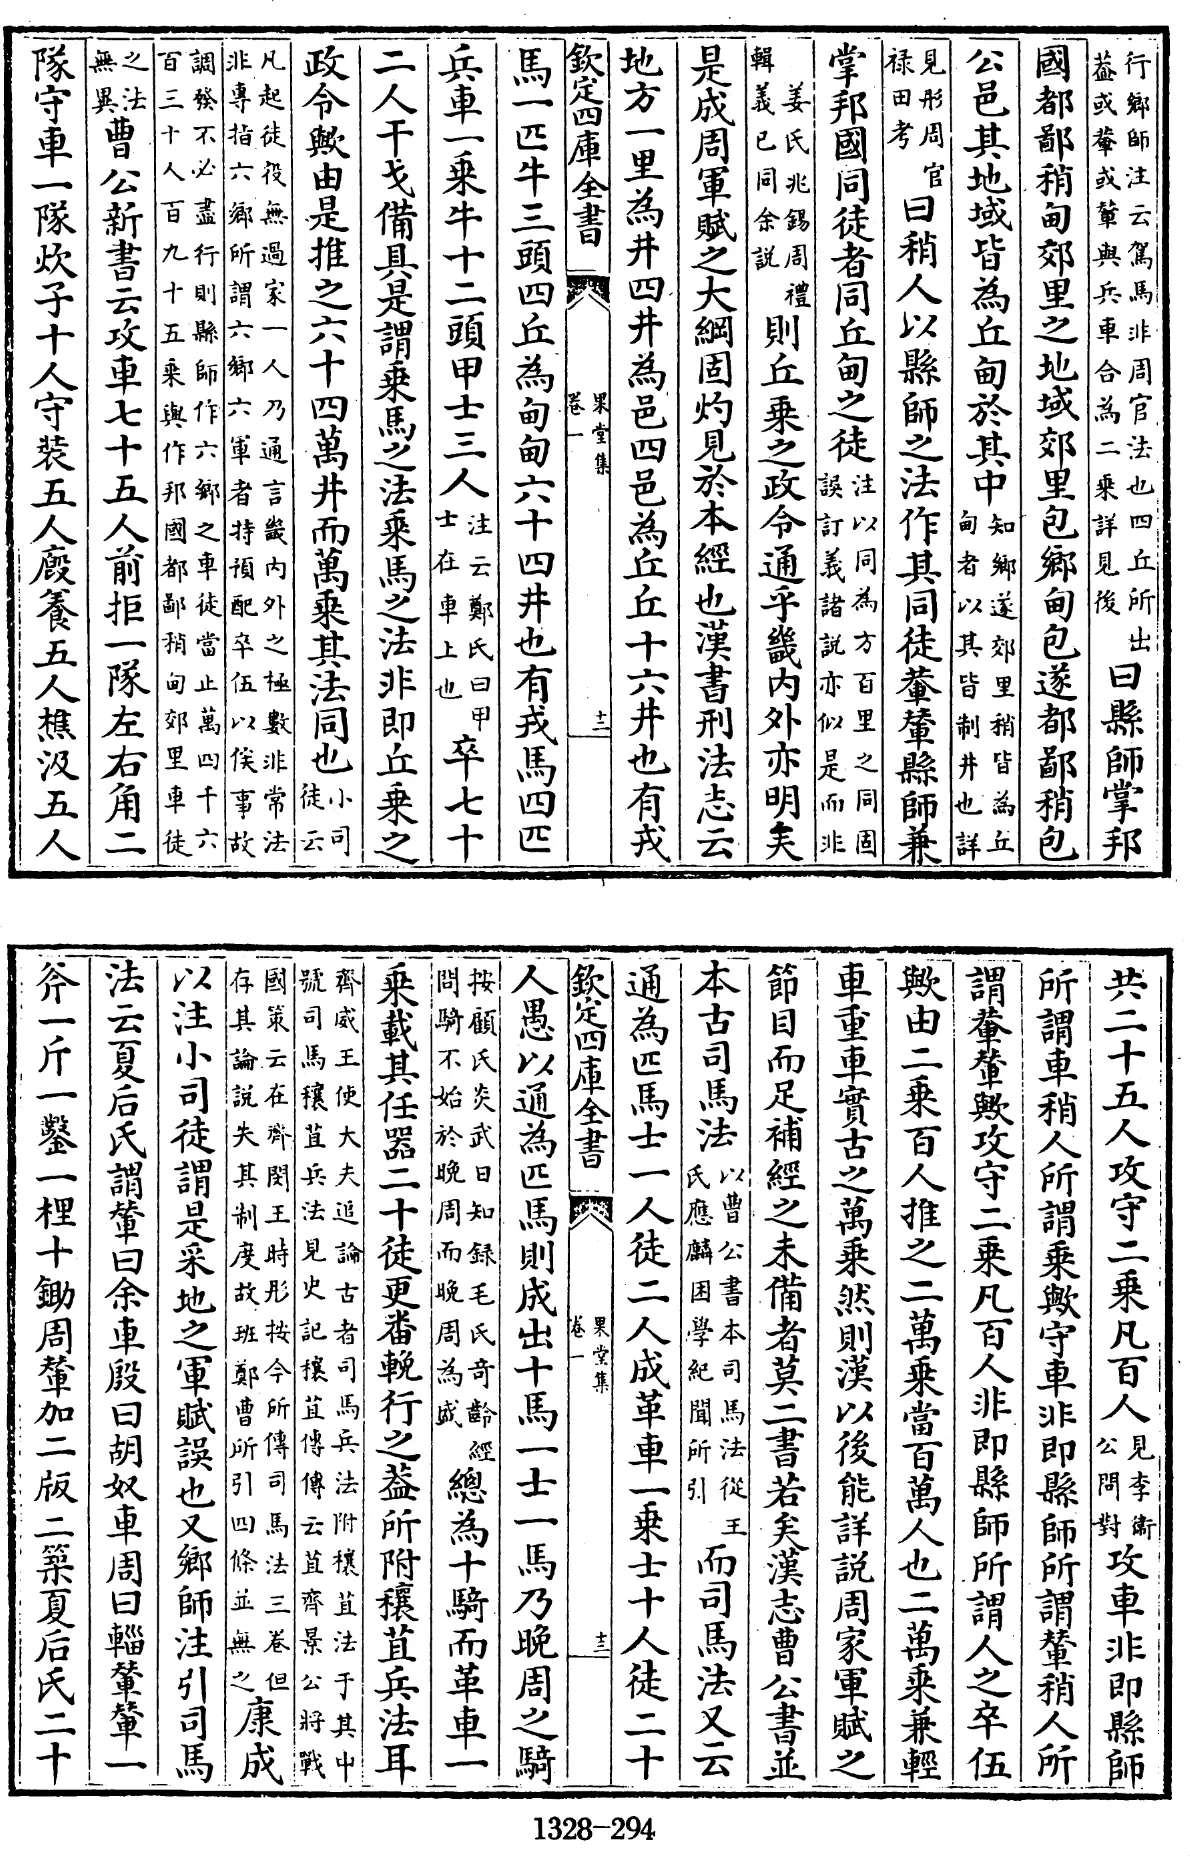 行鄉師注云駕馬非周官法也四丘所出
葢或輂或輦與兵車合為二乗詳見後
曰縣師掌邦
國都鄙稍甸郊里之地域郊里包鄉甸包遂都鄙稍包
公邑其地域皆為丘甸於其中
知鄉遂郊里稍皆為丘
甸者以其皆制井也詳
見彤周官
禄田考
曰稍人以縣師之法作其同徒輂輦縣師兼
掌邦國同徒者同丘甸之徒
注以同為方百里之同固
誤訂義諸說亦似是而非
姜氏兆錫周禮
輯義已同余説
則丘乗之政令通乎畿内外亦明矣
是成周軍賦之大綱固灼見於本經也漢書刑法志云
地方一里為井四井為邑四邑為丘丘十六井也有戎
欽定四庫全書
果堂集
卷一
十二
馬一匹牛三頭四丘為甸甸六十四井也有戎馬四匹
兵車一乗牛十二頭甲士三人
注云鄭氏曰甲
士在車上也
卒七十
二人干戈備具是謂乗馬之法乗馬之法非即丘乗之
政令歟由是推之六十四萬井而萬乗其法同也
小司
徒云
凡起徒役無過家一人乃通言畿内外之極數非常法
非專指六鄉所謂六鄉六軍者特預配卒伍以俟事故
調發不必盡行則縣師作六鄉之車徒當止萬四千六
百三十人百九十五乗與作邦國都鄙稍甸郊里車徒
之法
無異
曹公新書云攻車七十五人前拒一隊左右角二
隊守車一隊炊子十人守装五人廏養五人樵汲五人
共二十五人攻守二乗凡百人
見李衛
公問對
攻車非即縣師
所謂車稍人所謂乗歟守車非即縣師所謂輦稍人所
謂輂輦歟攻守二乗凡百人非即縣師所謂人之卒伍
歟由二乗百人推之二萬乗當百萬人也二萬乗兼輕
車重車實古之萬乗然則漢以後能詳説周家軍賦之
節目而足補經之未備者莫二書若矣漢志曹公書並
本古司馬法
以曹公書本司馬法從王
氏應麟困學紀聞所引
而司馬法又云
通為匹馬士一人徒二人成革車一乗士十人徒二十
欽定四庫全書
果堂集
卷一
十三
人愚以通為匹馬則成出十馬一士一馬乃晚周之騎
按顧氏炎武日知録毛氏竒齡經
問騎不始於晚周而晚周為盛
總為十騎而革車一
乗載其任器二十徒更番輓行之葢所附穰苴兵法耳
齊威王使大夫追論古者司馬兵法附穰苴法于其中
號司馬穰苴兵法見史記穰苴傳傳云苴齊景公將戰
國策云在齊閔王時彤按今所傳司馬法三卷但
存其論說失其制度故班鄭曹所引四條並無之
康成
以注小司徒謂是采地之軍賦誤也又鄉師注引司馬
法云夏后氏謂輦曰余車殷曰胡奴車周曰輜輦輦一
斧一斤一鑿一梩十鋤周輦加二版二築夏后氏二十
1328-294